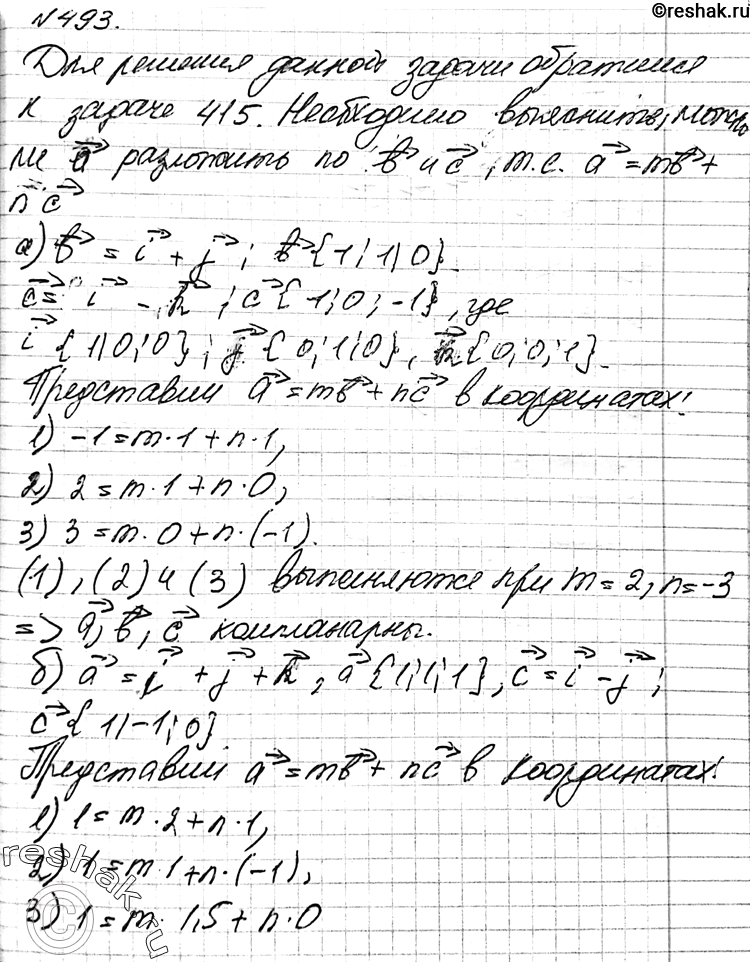 ©reshak.ru
№493.
Для решения данной задачи обратимся
к задаче 415. Необходимо выяснить, можно
ли a⃗ разложить по b⃗ и c⃗, т.е. a⃗ = mb⃗ +
n c⃗
а) b⃗ = i⃗ + j⃗; b⃗ {1; 1; 0}.
c⃗ = i⃗ - k⃗; c⃗ {1; 0; -1}, где
i⃗ {1; 0; 0}; j⃗ {0; 1; 0}, k⃗ {0; 0; 1}.
Представим a⃗ = mb⃗ + nc⃗ в координатах:
1) -1 = m·1 + n·1,
2) 2 = m·1 + n·0,
3) 3 = m·0 + n·(-1).
(1), (2) и (3) выполняются при m = 2, n = -3
=> a⃗, b⃗, c⃗ компланарны.
б) a⃗ = i⃗ + j⃗ + k⃗, a⃗ {1; 1; 1}, c⃗ = i⃗ - j⃗;
c⃗ {1; -1; 0}
Представим a⃗ = mb⃗ + nc⃗ в координатах:
1) 1 = m·2 + n·1,
2) 1 = m·1 + n·(-1),
3) 1 = m·1,5 + n·0
reshak.ru